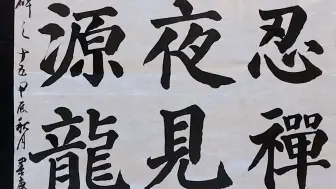 忍禪
夜見
源龍
碑之十五甲辰秋月